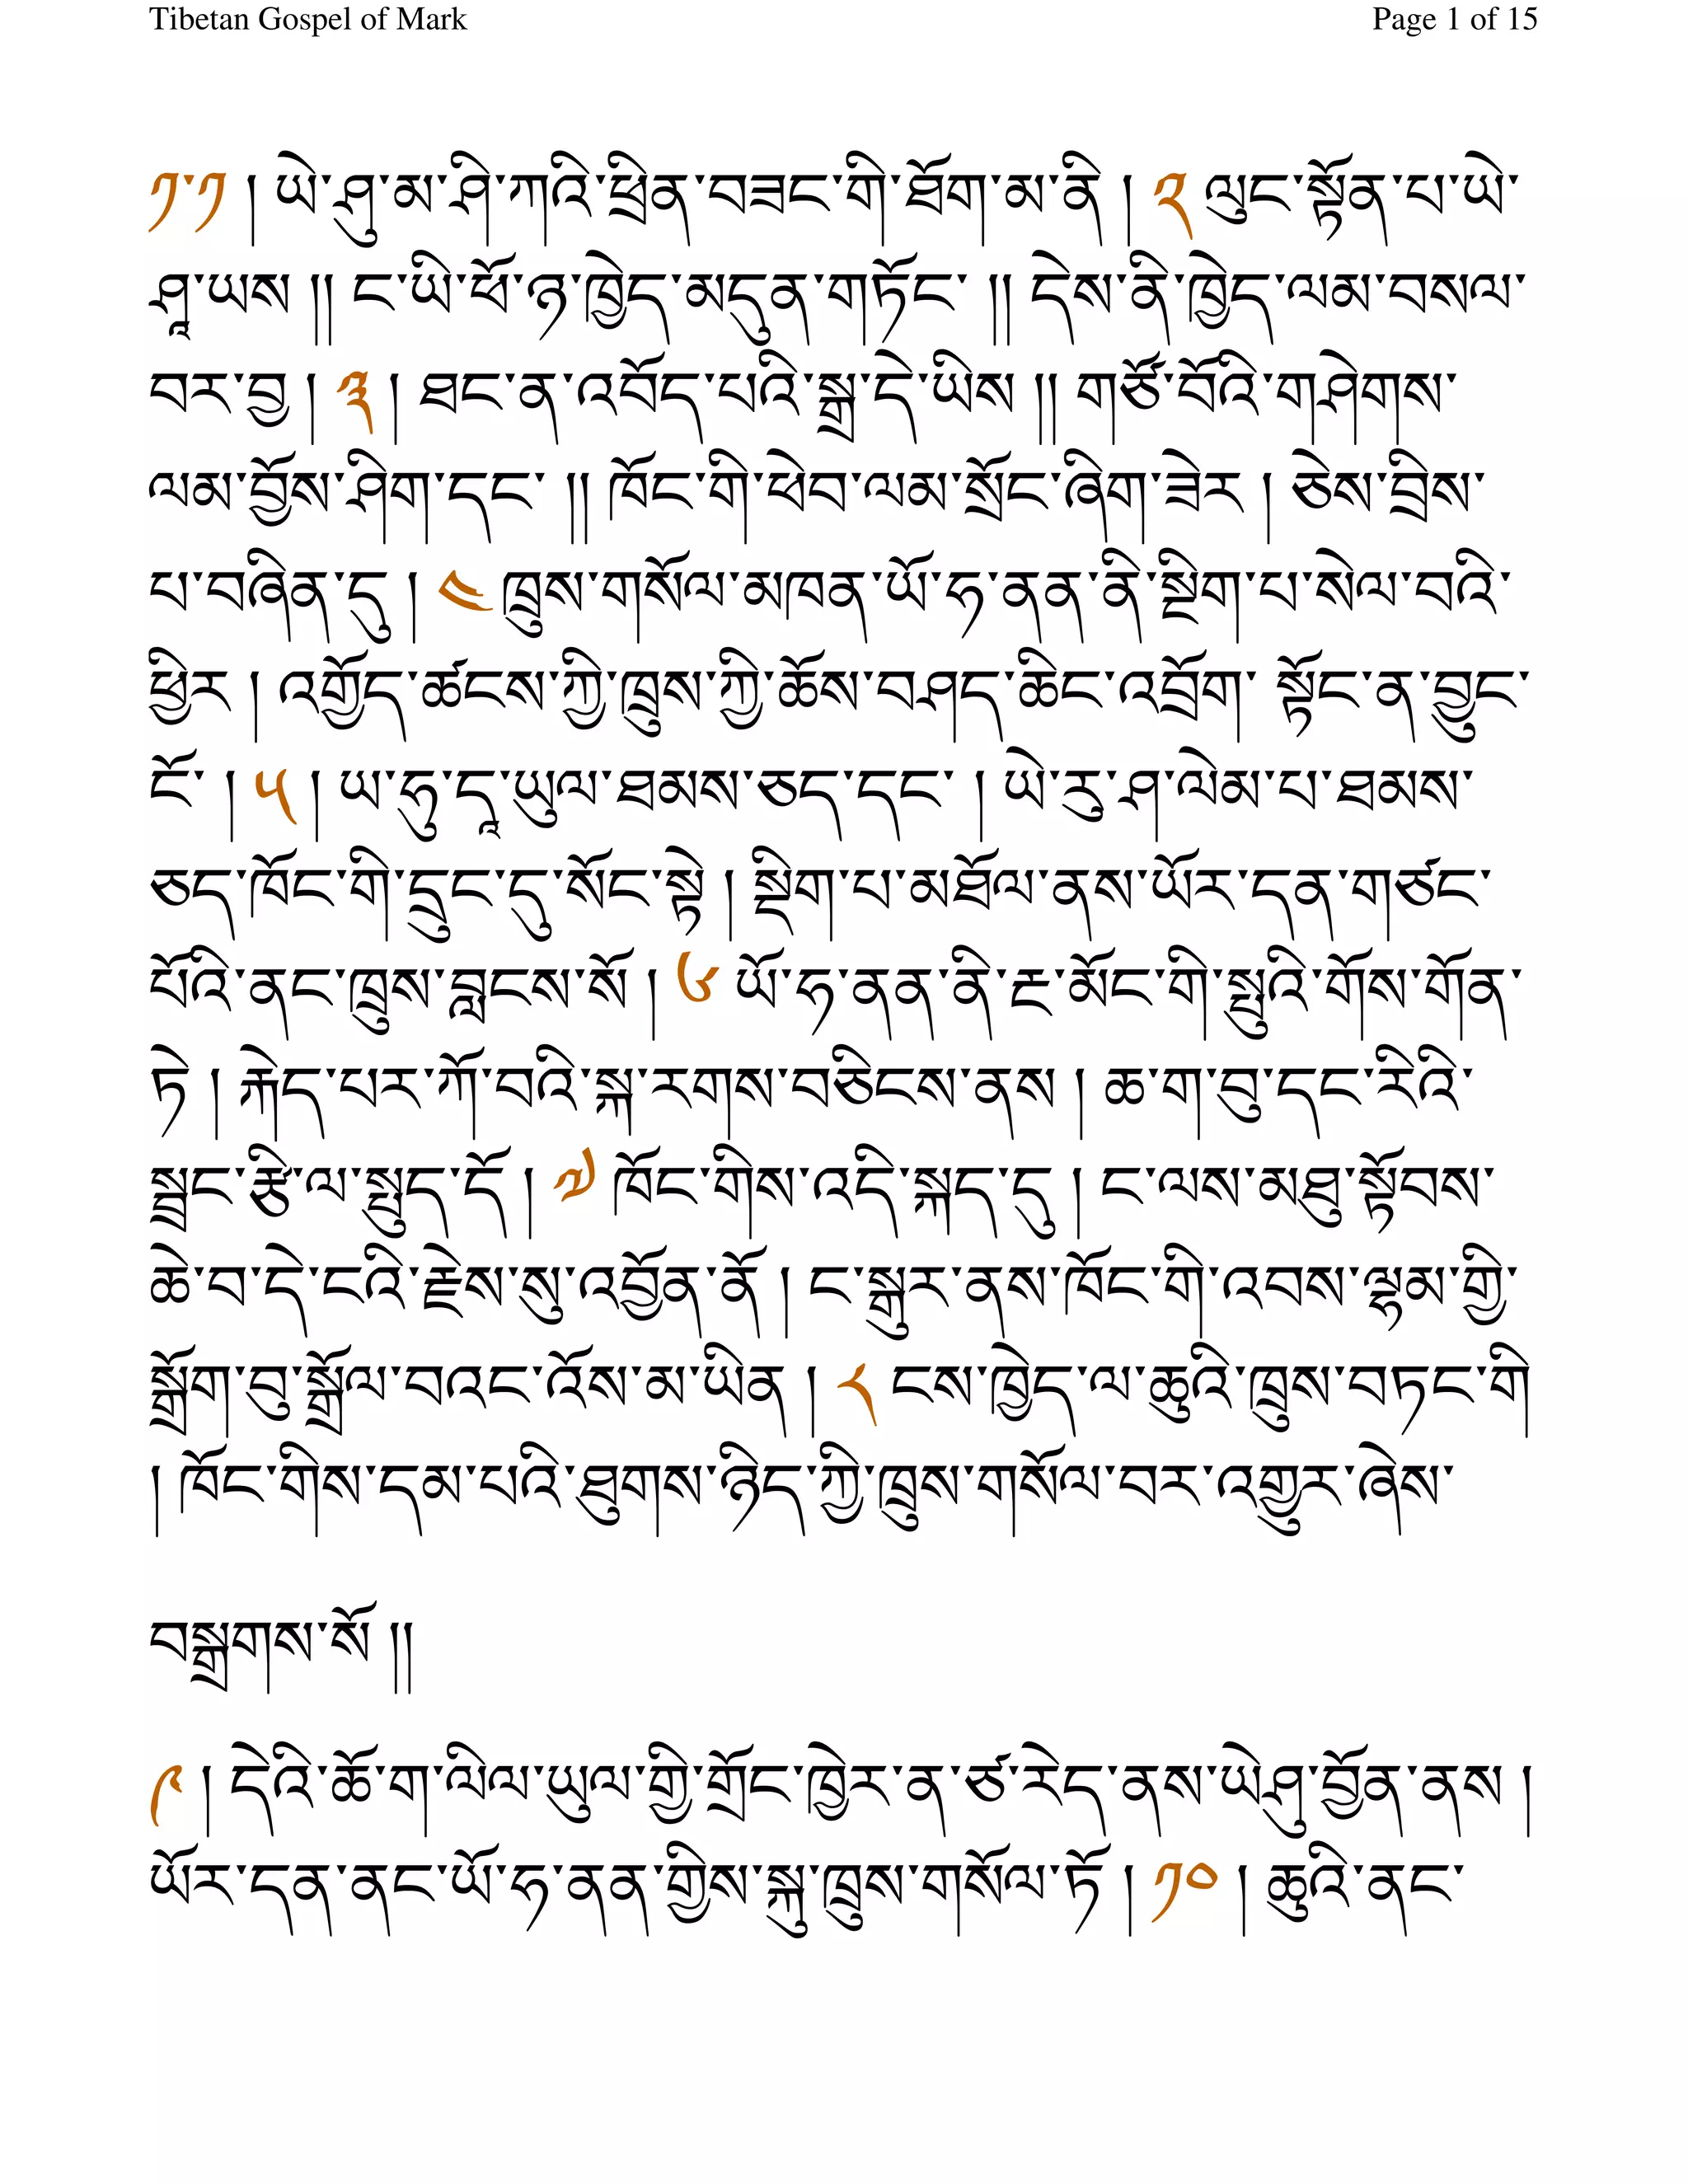 Tibetan Gospel of Mark Page 1 of 15
༡་༡ ། ཡེ་ཤུ་མ་ཤི་ཀའི་ཕྲིན་བཟང་གི་ཐོག་མ་ནི ། ༢ ལུང་སྟོན་པ་ཡེ་
ཤཱ་ཡས ༎ ང་ཡི་ཕོ་ཉ་ཁྱེད་མདུན་གཏོང་ ༎ དེས་ནི་ཁྱེད་ལམ་བསལ་
བར་བྱ ། ༣ ། ཐང་ན་འབོད་པའི་སྒྲ་དེ་ཡིས ༎ གཙོ་བོའི་གཤེགས་
ལམ་བྱོས་ཤིག་དང་ ༎ ཁོང་གི་ཕེབ་ལམ་སྲོང་ཞིག་ཟེར ། ཅེས་བྲིས་
པ་བཞིན་དུ ། ༤ ཁྲུས་གསོལ་མཁན་ཡོ་ཧ་ནན་ནི་སྡིག་པ་སེལ་བའི་
ཕྱིར ། འགྱོད་ཚངས་ཀྱི་ཁྲུས་ཀྱི་ཆོས་བཤད་ཆིང་འབྲོག་ སྟོང་ན་བྱུང་
ངོ་ ། ༥ ། ཡ་ཧུ་དཱ་ཡུལ་ཐམས་ཅད་དང་ ། ཡེ་རུ་ཤ་ལེམ་པ་ཐམས་
ཅད་ཁོང་གི་དྲུང་དུ་སོང་སྟེ ། སྡིག་པ་མཐོལ་ནས་ཡོར་དན་གཙང་
པོའི་ནང་ཁྲུས་བླངས་སོ ། ༦ ཡོ་ཧ་ནན་ནི་རྔ་མོང་གི་སྤུའི་གོས་གོན་
ཏེ ། རྐེད་པར་ཀོ་བའི་སྐ་རགས་བཅིངས་ནས ། ཆ་ག་བུ་དང་རིའི་
སྦྲང་རྩི་ལ་སྤྱད་དོ ། ༧ ཁོང་གིས་འདི་སྐད་དུ ། ང་ལས་མཐུ་སྟོབས་
ཆེ་བ་དེ་ངའི་རྗེས་སུ་འབྱོན་ནོ ། ང་སྒུར་ནས་ཁོང་གི་འབས་ལྷམ་གྱི་
སྒྲོག་བུ་སྒྲོལ་བའང་འོས་མ་ཡིན ། ༨ ངས་ཁྱེད་ལ་ཆུའི་ཁྲུས་བཏང་གི
། ཁོང་གིས་དམ་པའི་ཐུགས་ཉིད་ཀྱི་ཁྲུས་གསོལ་བར་འགྱུར་ཞེས་
བསྒྲགས་སོ ༎
༩ ། དེའི་ཆོ་ག་ལིལ་ཡུལ་གྱི་གྲོང་ཁྱེར་ན་ཙ་རེད་ནས་ཡེཤུ་བྱོན་ནས །
ཡོར་དན་ནང་ཡོ་ཧ་ནན་གྱིས་སྐུ་ཁྲུས་གསོལ་ཏོ ། ༡༠ ། ཆུའི་ནང་